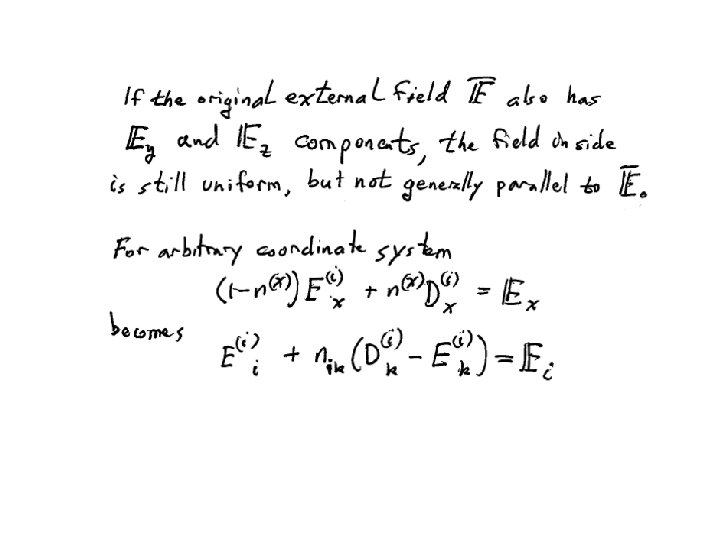 If the original external field 𝔼̅ also has
𝔼_y and 𝔼_z components, the field inside
is still uniform, but not generally parallel to 𝔼̅.
For arbitrary coordinate system
(1-n^(x)) E_x^(i) + n^(x) D_x^(i) = 𝔼_x
becomes
E^(i)_i + n_ik (D_k^(i) - E_k^(i)) = 𝔼_i